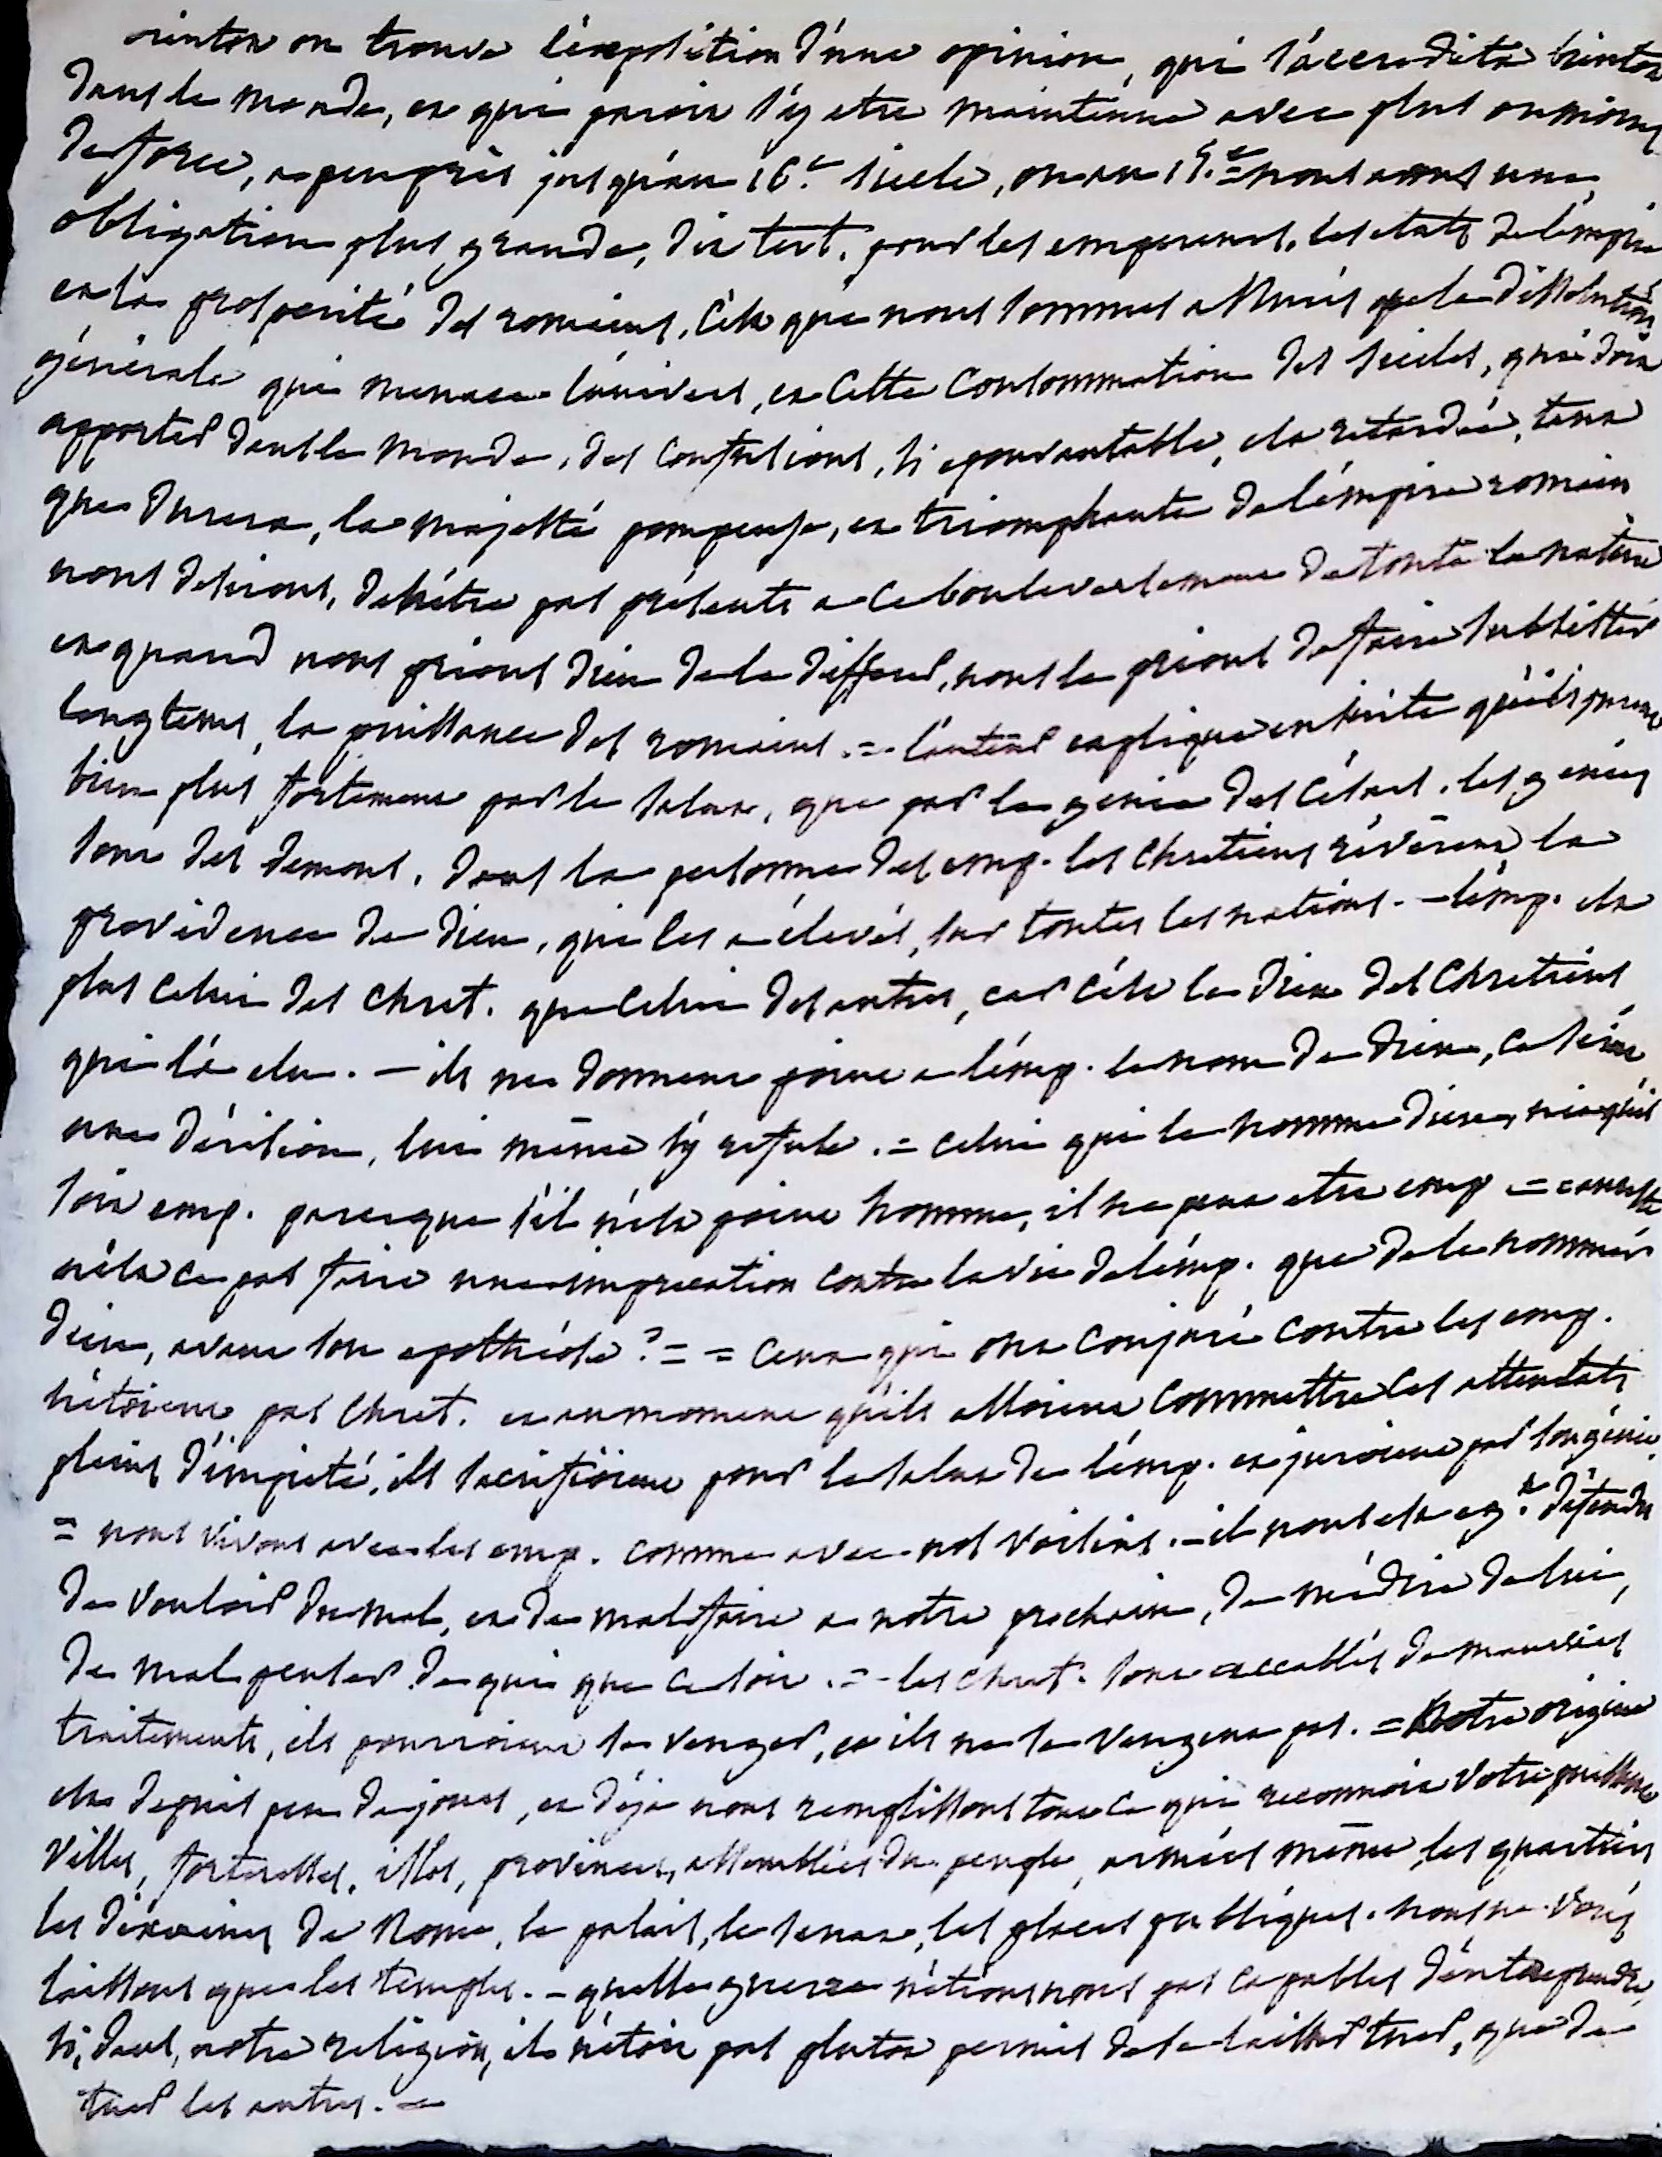 on trouve l'exposition d'une opinion, qui s'accredita bientot
dans le monde, et qui paroit s'y etre maintenue avec plus ou moins
de force, a peu près jusqu'au 16.e siecle, ou au 15.e = nous avons une
obligation plus grande, dit tert. pour les empereurs, les etats de l'empire
et la prosperité des romains, c'est que nous sommes assurés que la dissolution
générale qui menace l'univers, et cette consommation des siecles, qui doit
apporter dans le monde, des confusions, si epouvantables, est retardée, tant
que durera, la majesté pompeuse, et triomphante de l'empire romain
nous desirons, de n'être pas présents a ce bouleversement de toute la nature
et quand nous prions dieu de le differer, nous le prions de faire subsister
longtems, la puissance des romains. = l'auteur explique ensuite qu'ils jurent
bien plus fortement par le salut, que par le genie des Césars. les génies
sont des demons. dans la personne des emp. les chretiens révèrent la
providence de dieu, qui les a élevés, sur toutes les nations. - l'emp. est
plus celui des chret. que celui des autres, car c'est le dieu des chretiens
qui l'a elu. - ils ne donnent point a l'emp. le nom de dieu, ce seroit
une dérision, lui même s'y refuse. = celui qui le nomme dieu, nie qu'il
soit emp. parceque s'il n'est point homme, il ne peut etre emp = = ensuite
n'est ce pas faire une imprecation contre la vie de l'emp. que de le nommer
dieu, avant son apothéose ? = = ceux qui ont conjuré contre les emp.
n'étoient pas chret. et au moment qu'ils alloient commettre les attentats
pleins d'impieté, ils sacrifioient pour le salut de l'emp. et juroient par son génie
= nous vivons avec les emp. comme avec nos voisins. - il nous est eg.t défendu
de vouloir du mal, et de mal faire a notre prochain, de médire de lui,
de mal penser de qui que ce soit. = - les chret. sont accablés de mauvais
traitements, ils pourroient se venger, et ils ne se vengent pas. = Notre origine
est depuis peu de jours, et déja nous remplissons tout ce qui reconnoit votre puissance
villes, forteresses, isles, provinces, assemblées du peuple, armées même, les quartiers
les dixaines de Rome, le palais, le senat, les places publiques. nous ne vous
laissons que les temples. - quelle guerre n'étions nous pas capables d'entreprendre,
si, dans, notre religion, il n'étoit pas plutot permis de se laisser tuer, que de
tuer les autres. =